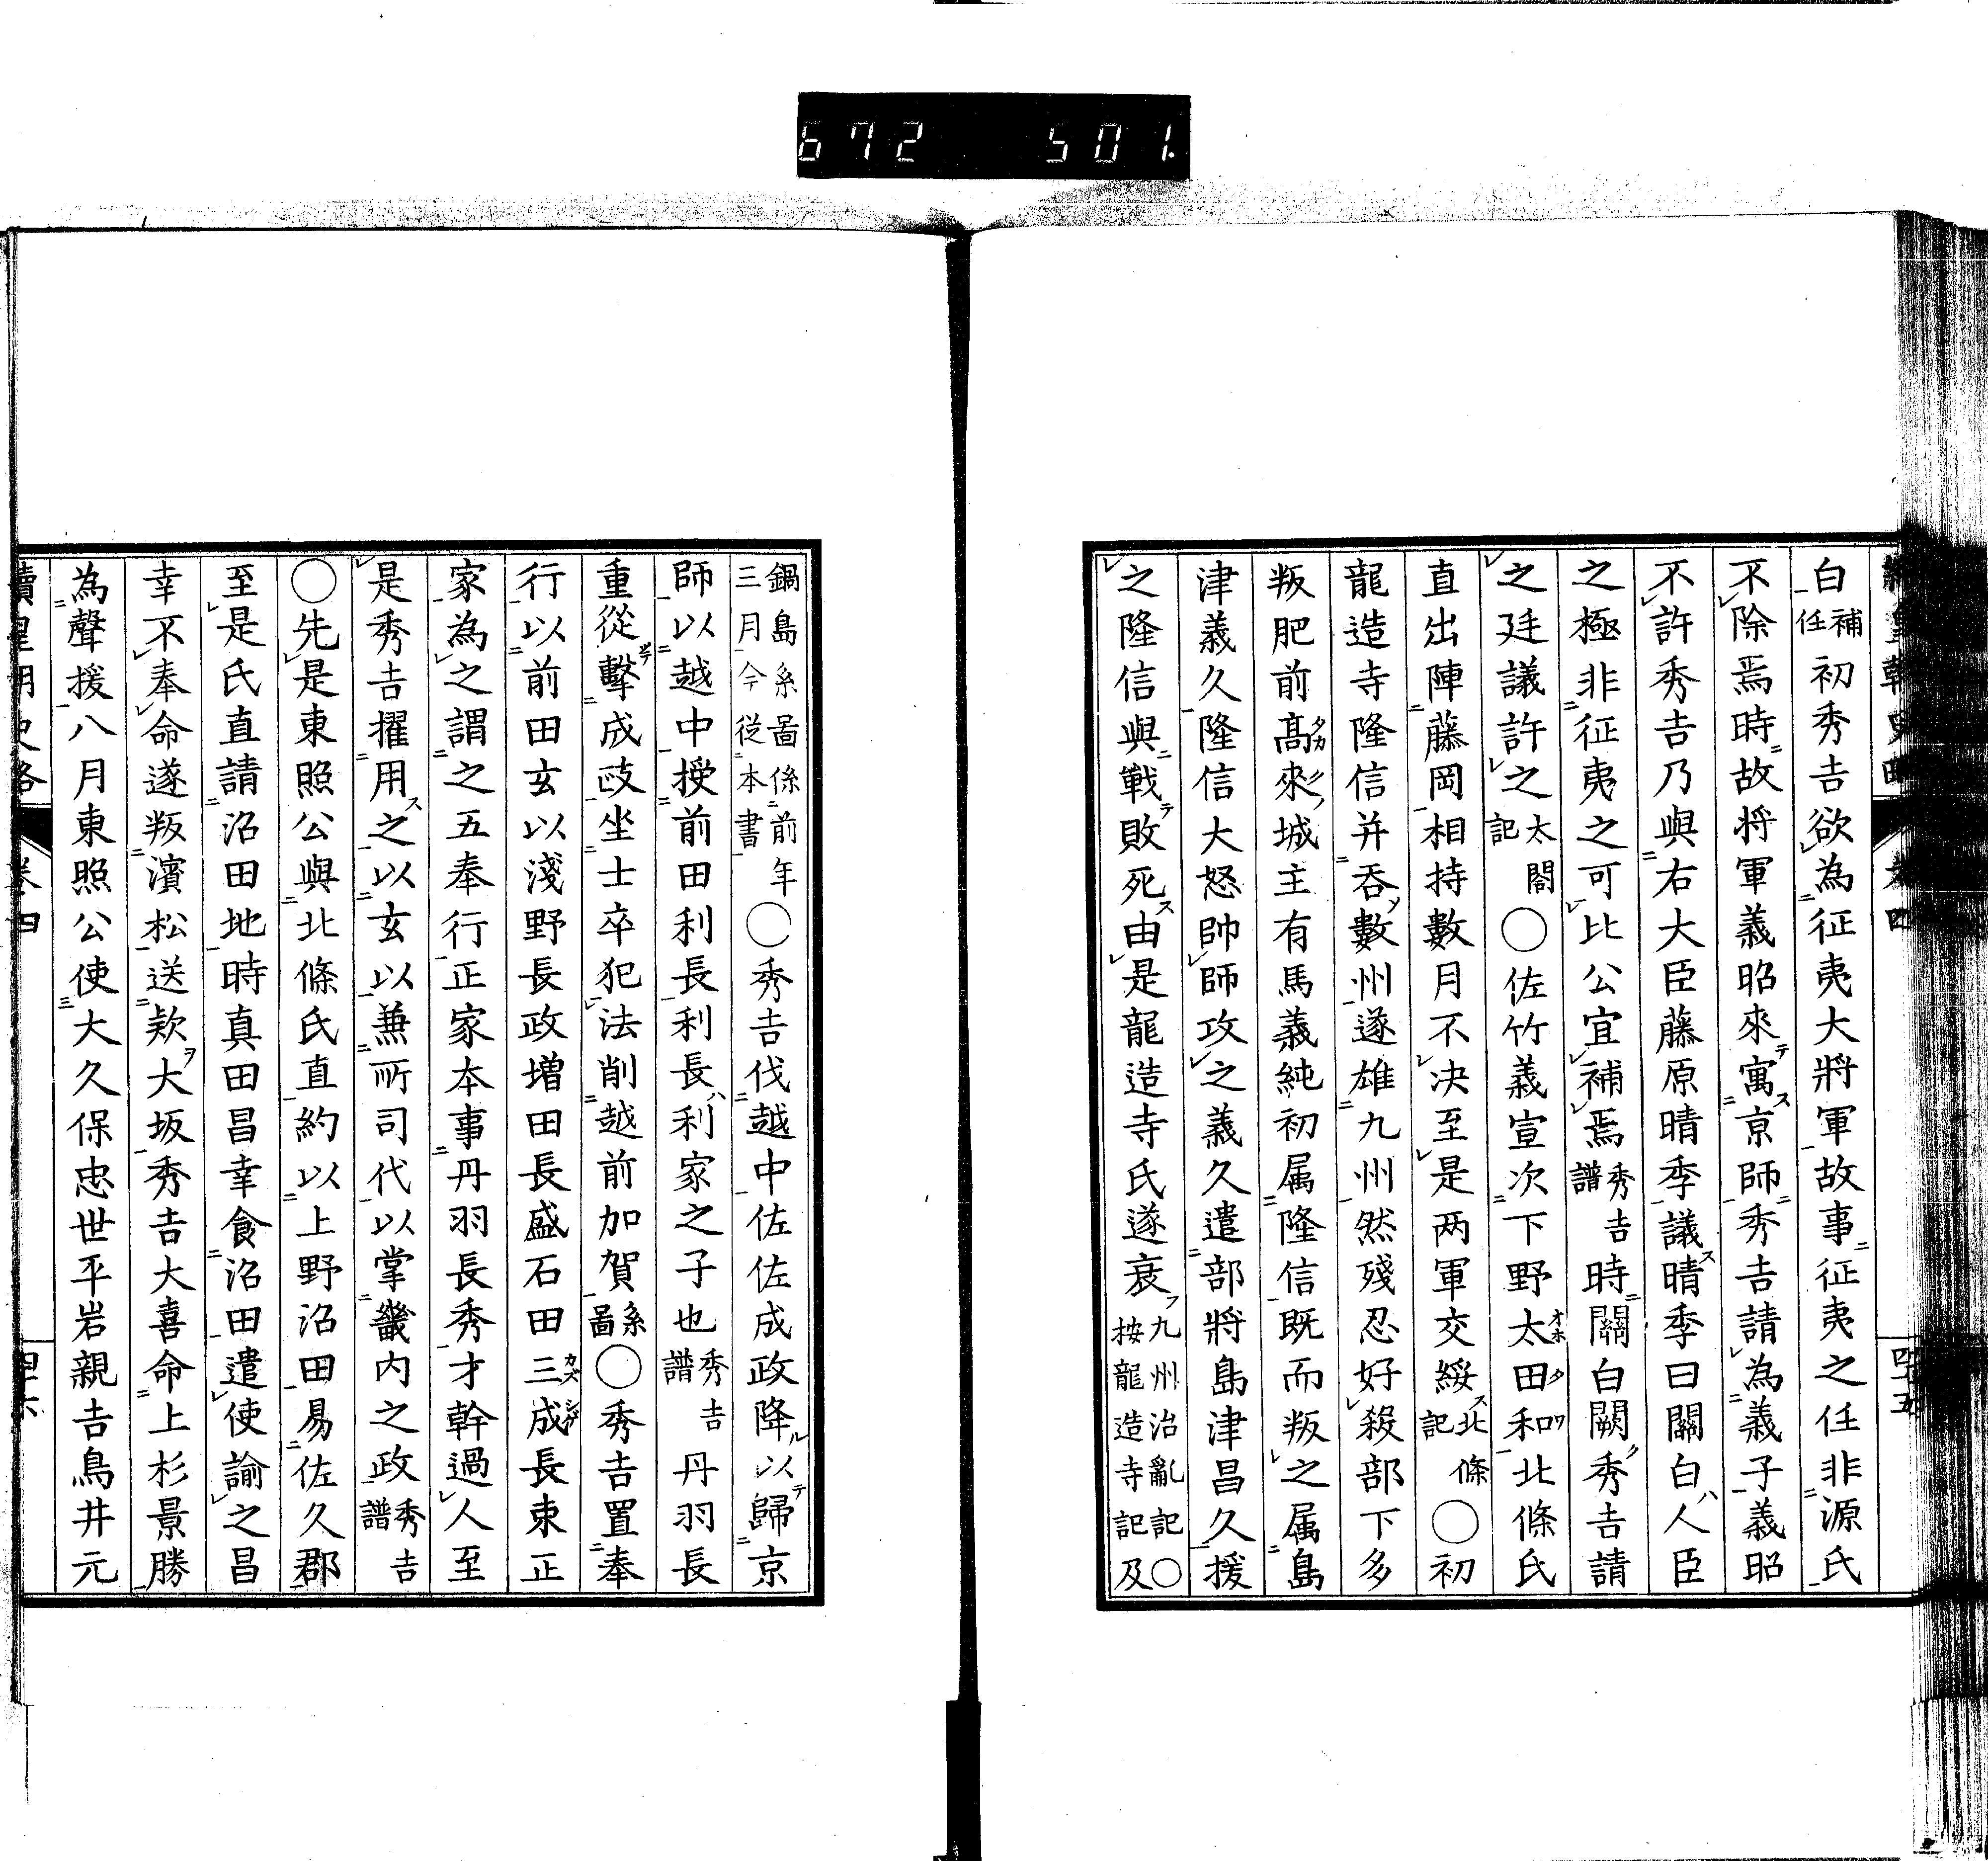 672 501.
白補任初秀吉欲為征夷大將軍故事征夷之任非源氏
不除焉時故将軍義昭來テ寓ス京師秀吉請為義子義昭
不許秀吉乃與右大臣藤原晴季議ス晴季曰關白ハ人臣
之極非征夷之可比公宜補焉秀吉譜時關白闕ク秀吉請
之廷議許之太閤記〇佐竹義宣次下野太田和オホタワ北條氏
直出陣藤岡相持數月不决至是两軍交綏ス北條記〇初
龍造寺隆信并吞ノ數州遂雄九州然殘忍好殺部下多
叛肥前高來タカク城主有馬義純初属隆信既而叛之属島
津義久隆信大怒帥師攻之義久遣部將島津昌久援
之隆信與戰テ敗死ス由是龍造寺氏遂衰フ九州治亂記〇按龍造寺記及
四十五
鍋島系啚係前年三月今從本書〇秀吉伐越中佐佐成政降ル以テ歸京
師以越中授前田利長利長ハ利家之子也秀吉譜丹羽長
重從擊成政坐士卒犯法削越前加賀系啚〇秀吉置奉
行以前田玄以淺野長政增田長盛石田三成カズシゲ長束正
家為之謂之五奉行正家本事丹羽長秀才幹過人至
是秀吉擢用ス之以玄以兼所司代以掌畿内之政秀吉譜
〇先是東照公與北條氏直約以上野沼田易佐久郡
至是氏直請沼田地時真田昌幸食沼田遣使諭之昌
幸不奉命遂叛濱松送款ヲ大坂秀吉大喜命上杉景勝
為聲援八月東照公使大久保忠世平岩親吉鳥井元
卷四
四十六